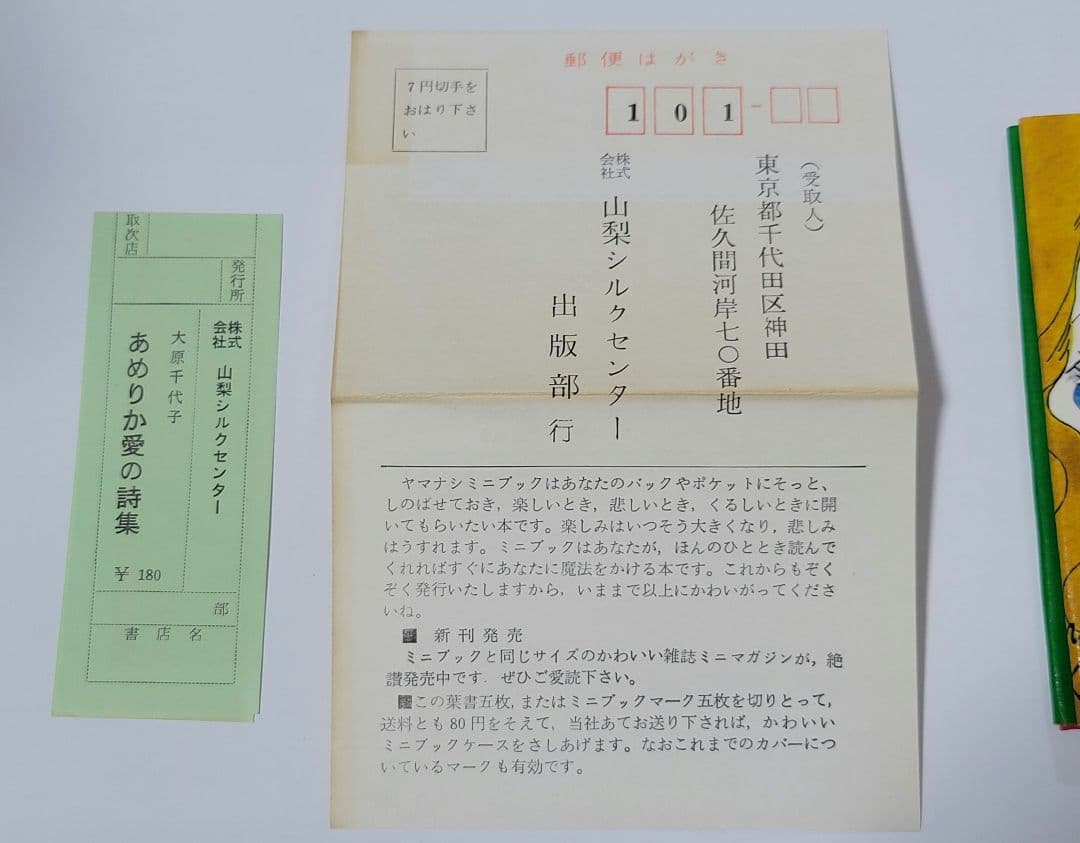 取次店
発行所
株式会社 山梨シルクセンター
大原千代子
あめりか愛の詩集
¥ 180
部
書店名
郵便はがき
7円切手を
おはり下さ
い
101-
(受取人)
東京都千代田区神田
佐久間河岸七〇番地
株式会社 山梨シルクセンター
出版部行
ヤマナシミニブックはあなたのバックやポケットにそっと、
しのばせておき，楽しいとき，悲しいとき，くるしいときに開
いてもらいたい本です。楽しみはいつそう大きくなり，悲しみ
はうすれます。ミニブックはあなたが，ほんのひととき読んで
くれればすぐにあなたに魔法をかける本です。これからもぞく
ぞく発行いたしますから，いままで以上にかわいがってくださ
いね。
新刊発売
ミニブックと同じサイズのかわいい雑誌ミニマガジンが，絶
讃発売中です．ぜひご愛読下さい。
この葉書五枚，またはミニブックマーク五枚を切りとって，
送料とも80円をそえて，当社あてお送り下されば，かわいい
ミニブックケースをさしあげます。なおこれまでのカバーにつ
いているマークも有効です。